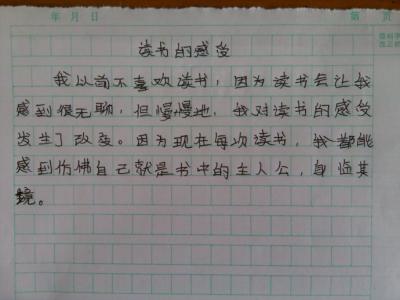 年 月 日 第 页
读书的感受
我以前不喜欢读书，因为读书会让我
感到很无聊，但慢慢地，我对读书的感受
发生了改变。因为现在每次读书，我都能
感到仿佛自己就是书中的主人公，身临其
镜。